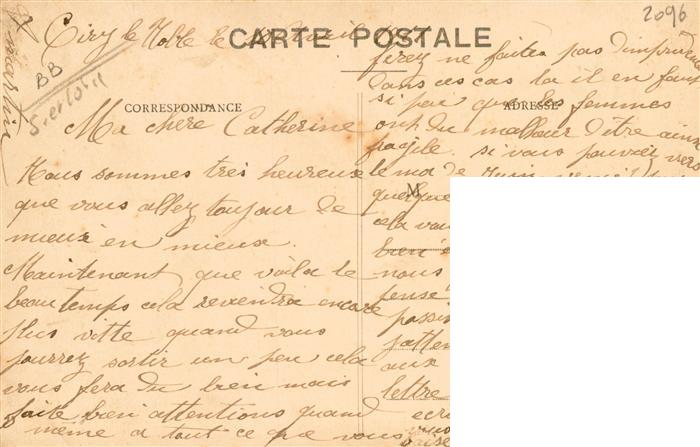 2096
BB
Martin
Ciry le Noble le
CARTE POSTALE
CORRESPONDANCE
ADRESSE
M
Ma chère Catherine
Nous sommes très heureuse
que vous allez toujour de
mieux en mieux.
Maintenant que voila le
beau temps cela reviendra encore
plus vitte quand vous
pourrez sortir un peu cela
vous fera du bien mais
faite bien attentions quand
même a tout ce que vous
ferez ne faites pas d'imprudence
dans ces cas la il en faut
si peu que les femmes
ont du malheur d'être ainsi
fragile. si vous pouviez
le moi de
quelque
cela vous
bien
nous
pense
passi
j'atten
aux
lettre
ecri
vous